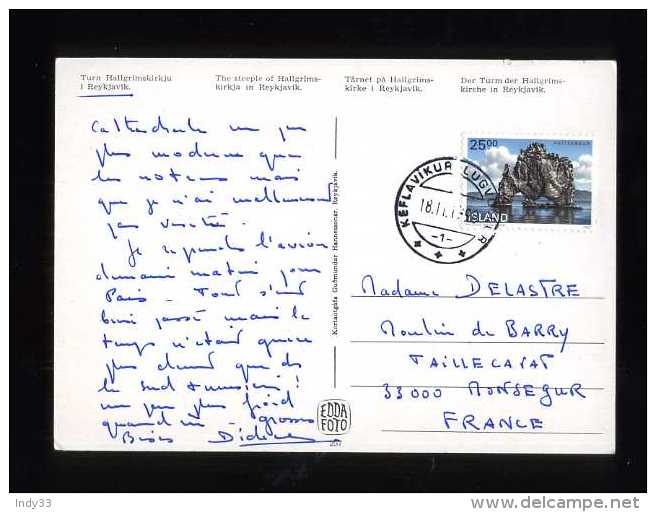 Turn Hallgrimskirkju
í Reykjavík.
The steeple of Hallgrims-
kirkja in Reykjavik.
Tårnet på Hallgrims-
kirke i Reykjavik.
Der Turm der Hallgrims-
kirche in Reykjavik.
Cathédrale un peu
plus moderne que
les notres mais
que je n'ai malheureusement
pas visitée.
Je reprends l'avion
demain matin pour
Paris - Tout s'est
bien passé mais le
temps n'était guère
plus clément que
le sud
un peu plus froid
quand m - grosses
Bises Didier
Kortaútgáfa Guðmundar Hannessonar, Reykjavík.
EDDA
FOTO
25.00
HVÍTSERKUR
ÍSLAND
KEFLAVIKURFLUGVÖLLUR
18.11.7
-1-
Madame DELASTRE
Moulin de BARRY
TAILLECAVAT
33000 MONSEGUR
FRANCE
Indy33
www.delcampe.net